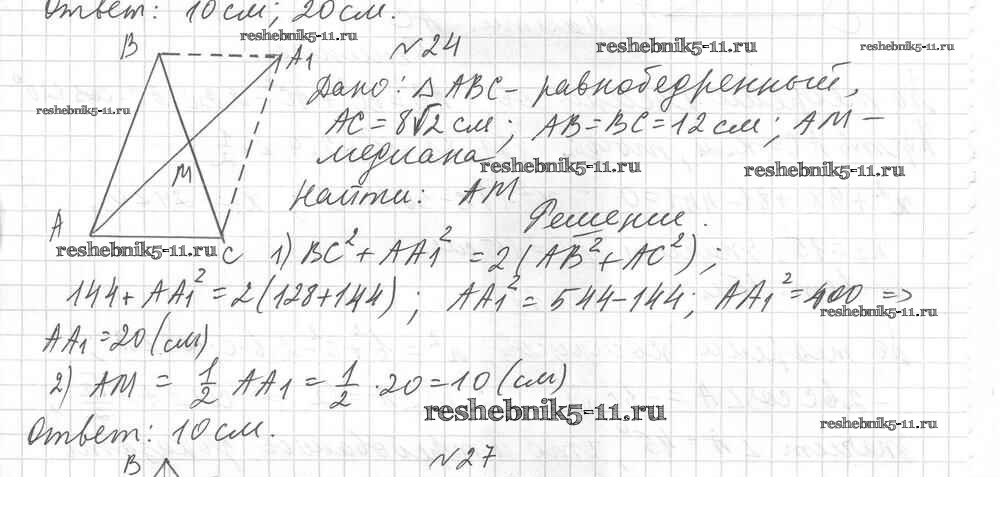 Ответ: 10 см; 20 см.
reshebnik5-11.ru
B A₁ №24
reshebnik5-11.ru reshebnik5-11.ru
Дано: △ABC - равнобедренный,
reshebnik5-11.ru
AC = 8√2 см; AB = BC = 12 см; AM -
медиана
reshebnik5-11.ru reshebnik5-11.ru
M
Найти: AM
Решение.
A
reshebnik5-11.ru
C 1) BC² + AA₁² = 2(AB² + AC²);
144 + AA₁² = 2(128 + 144); AA₁² = 544 - 144; AA₁² = 400 =>
reshebnik5-11.ru
AA₁ = 20 (см)
2) AM = 1/2 AA₁ = 1/2 · 20 = 10 (см)
reshebnik5-11.ru reshebnik5-11.ru
Ответ: 10 см.
B №27